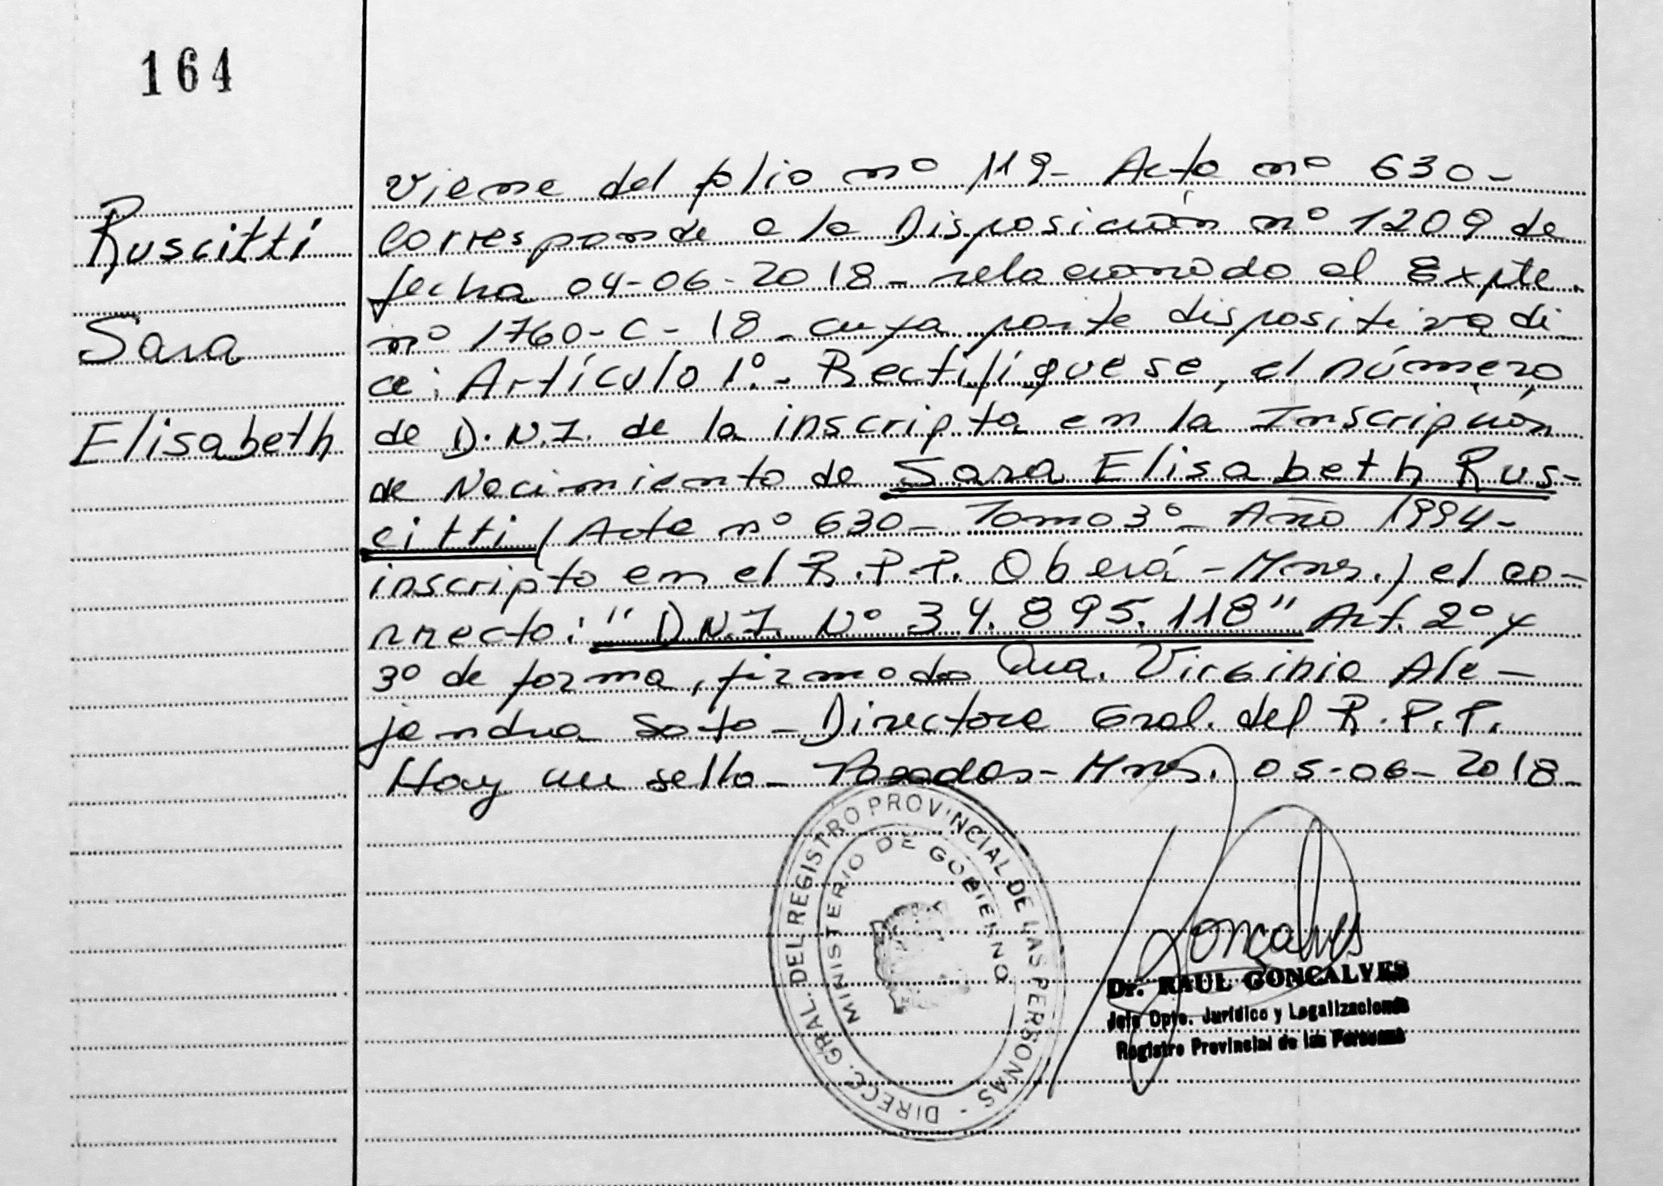 164
Ruscitti
Sara
Elisabeth
Viene del folio nº 119- Acta nº 630-
Corresponde a la Disposición nº 1209 de
fecha 04-06-2018- relacionado al Expte.
nº 1760-C-18- cuya parte dispositiva di
ce: Artículo 1º- Rectifíquese, el número,
de D.N.I. de la inscripta en la Inscripción
de Nacimiento de Sara Elisabeth Rus-
citti (Acta nº 630- Tomo 3º- Año 1994-
inscripto en el R.P.P. Oberá-Mnes.) el co-
rrecto: "D.N.I. Nº 34.895.118" Art. 2º y
3º de forma, firmado Dra. Virginia Ale-
jandra Soto- Directora Gral. del R.P.P.
Hay un sello- Posadas- Mnes. 05-06-2018-
DIRECC. GRAL. DEL REGISTRO PROVINCIAL DE LAS PERSONAS -
MINISTERIO DE GOBIERNO
Goncalves
Dr. RAUL GONCALVES
Jefe Dpto. Jurídico y Legalizaciones
Registro Provincial de las Personas